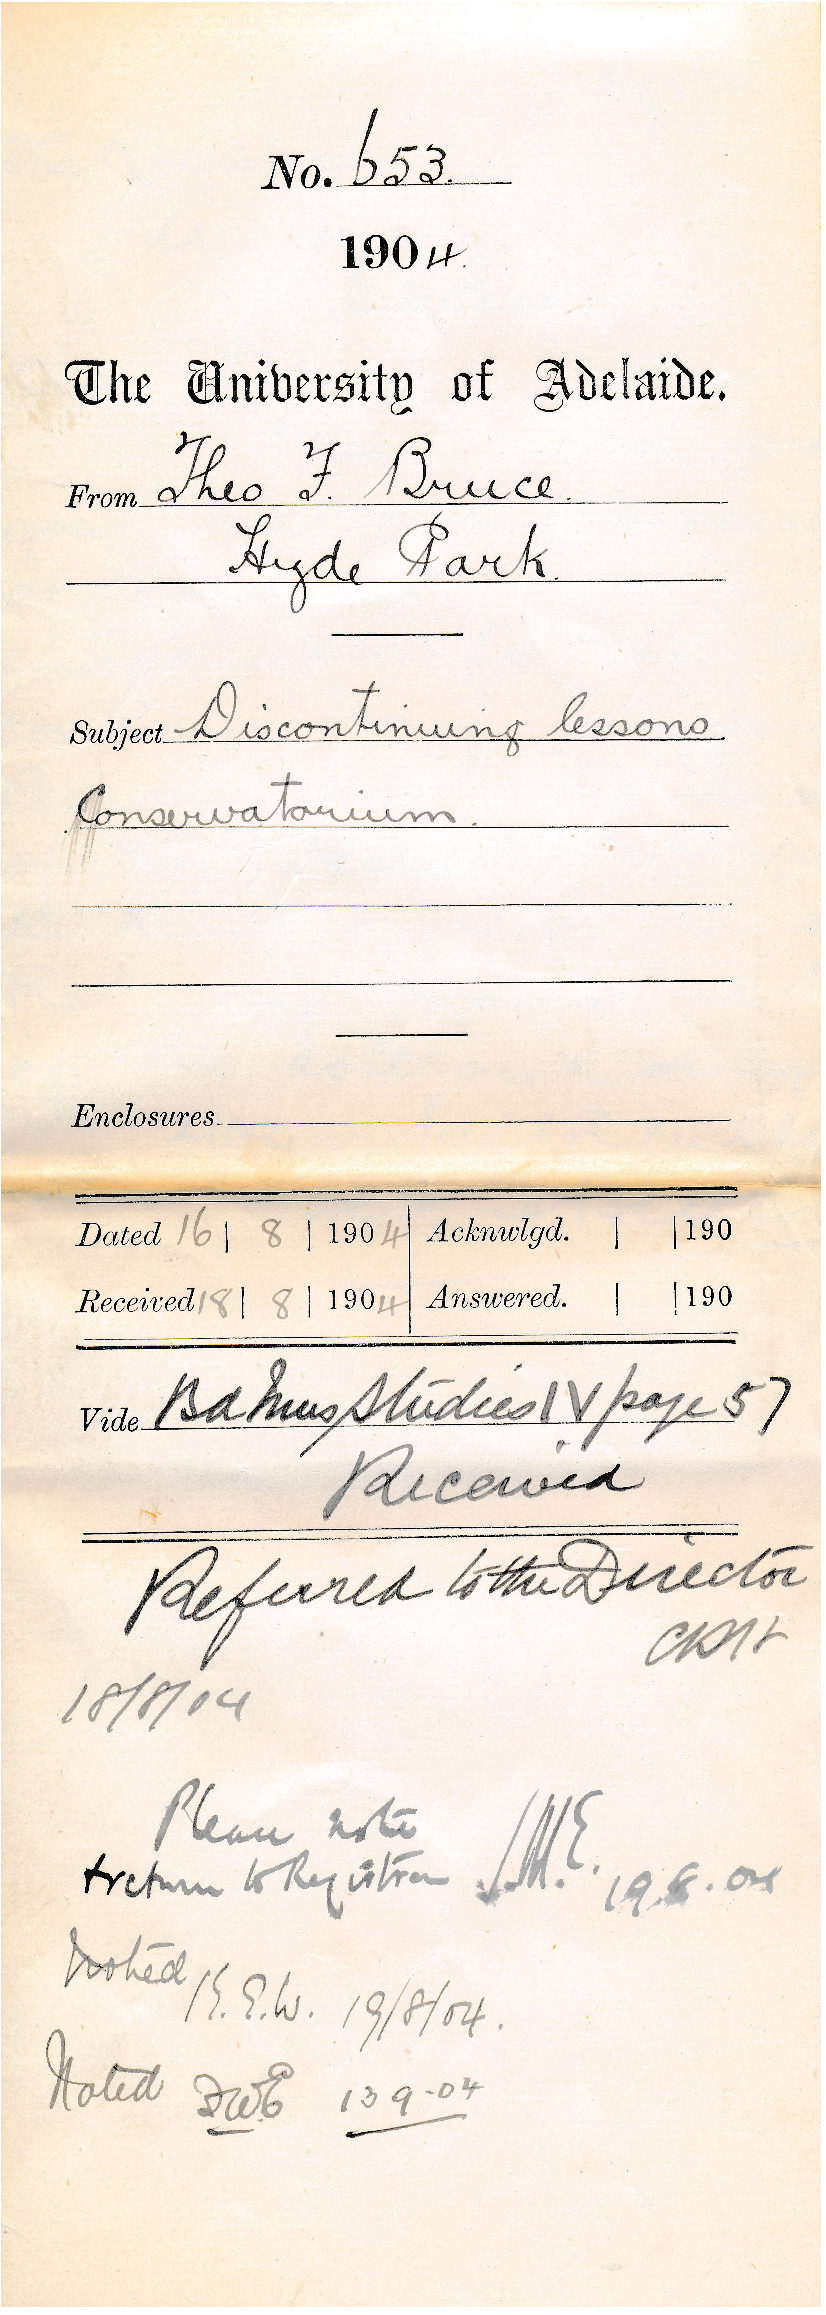 No. 653.
1904.
The University of Adelaide.
From Theo F. Bruce.
Hyde Park.
Subject Discontinuing lessons
Conservatorium.
Enclosures
Dated 16 | 8 | 1904 Acknwlgd. | | 190
Received 18 | 8 | 1904 Answered. | | 190
Vide Bd Mus Studies IV page 57
Received
Referred to the Director
18/8/04
Please note
+ return to Registrar J.M.E. 19.8.04
Noted K.E.W. 19/8/04.
Noted FWE 13 9-04